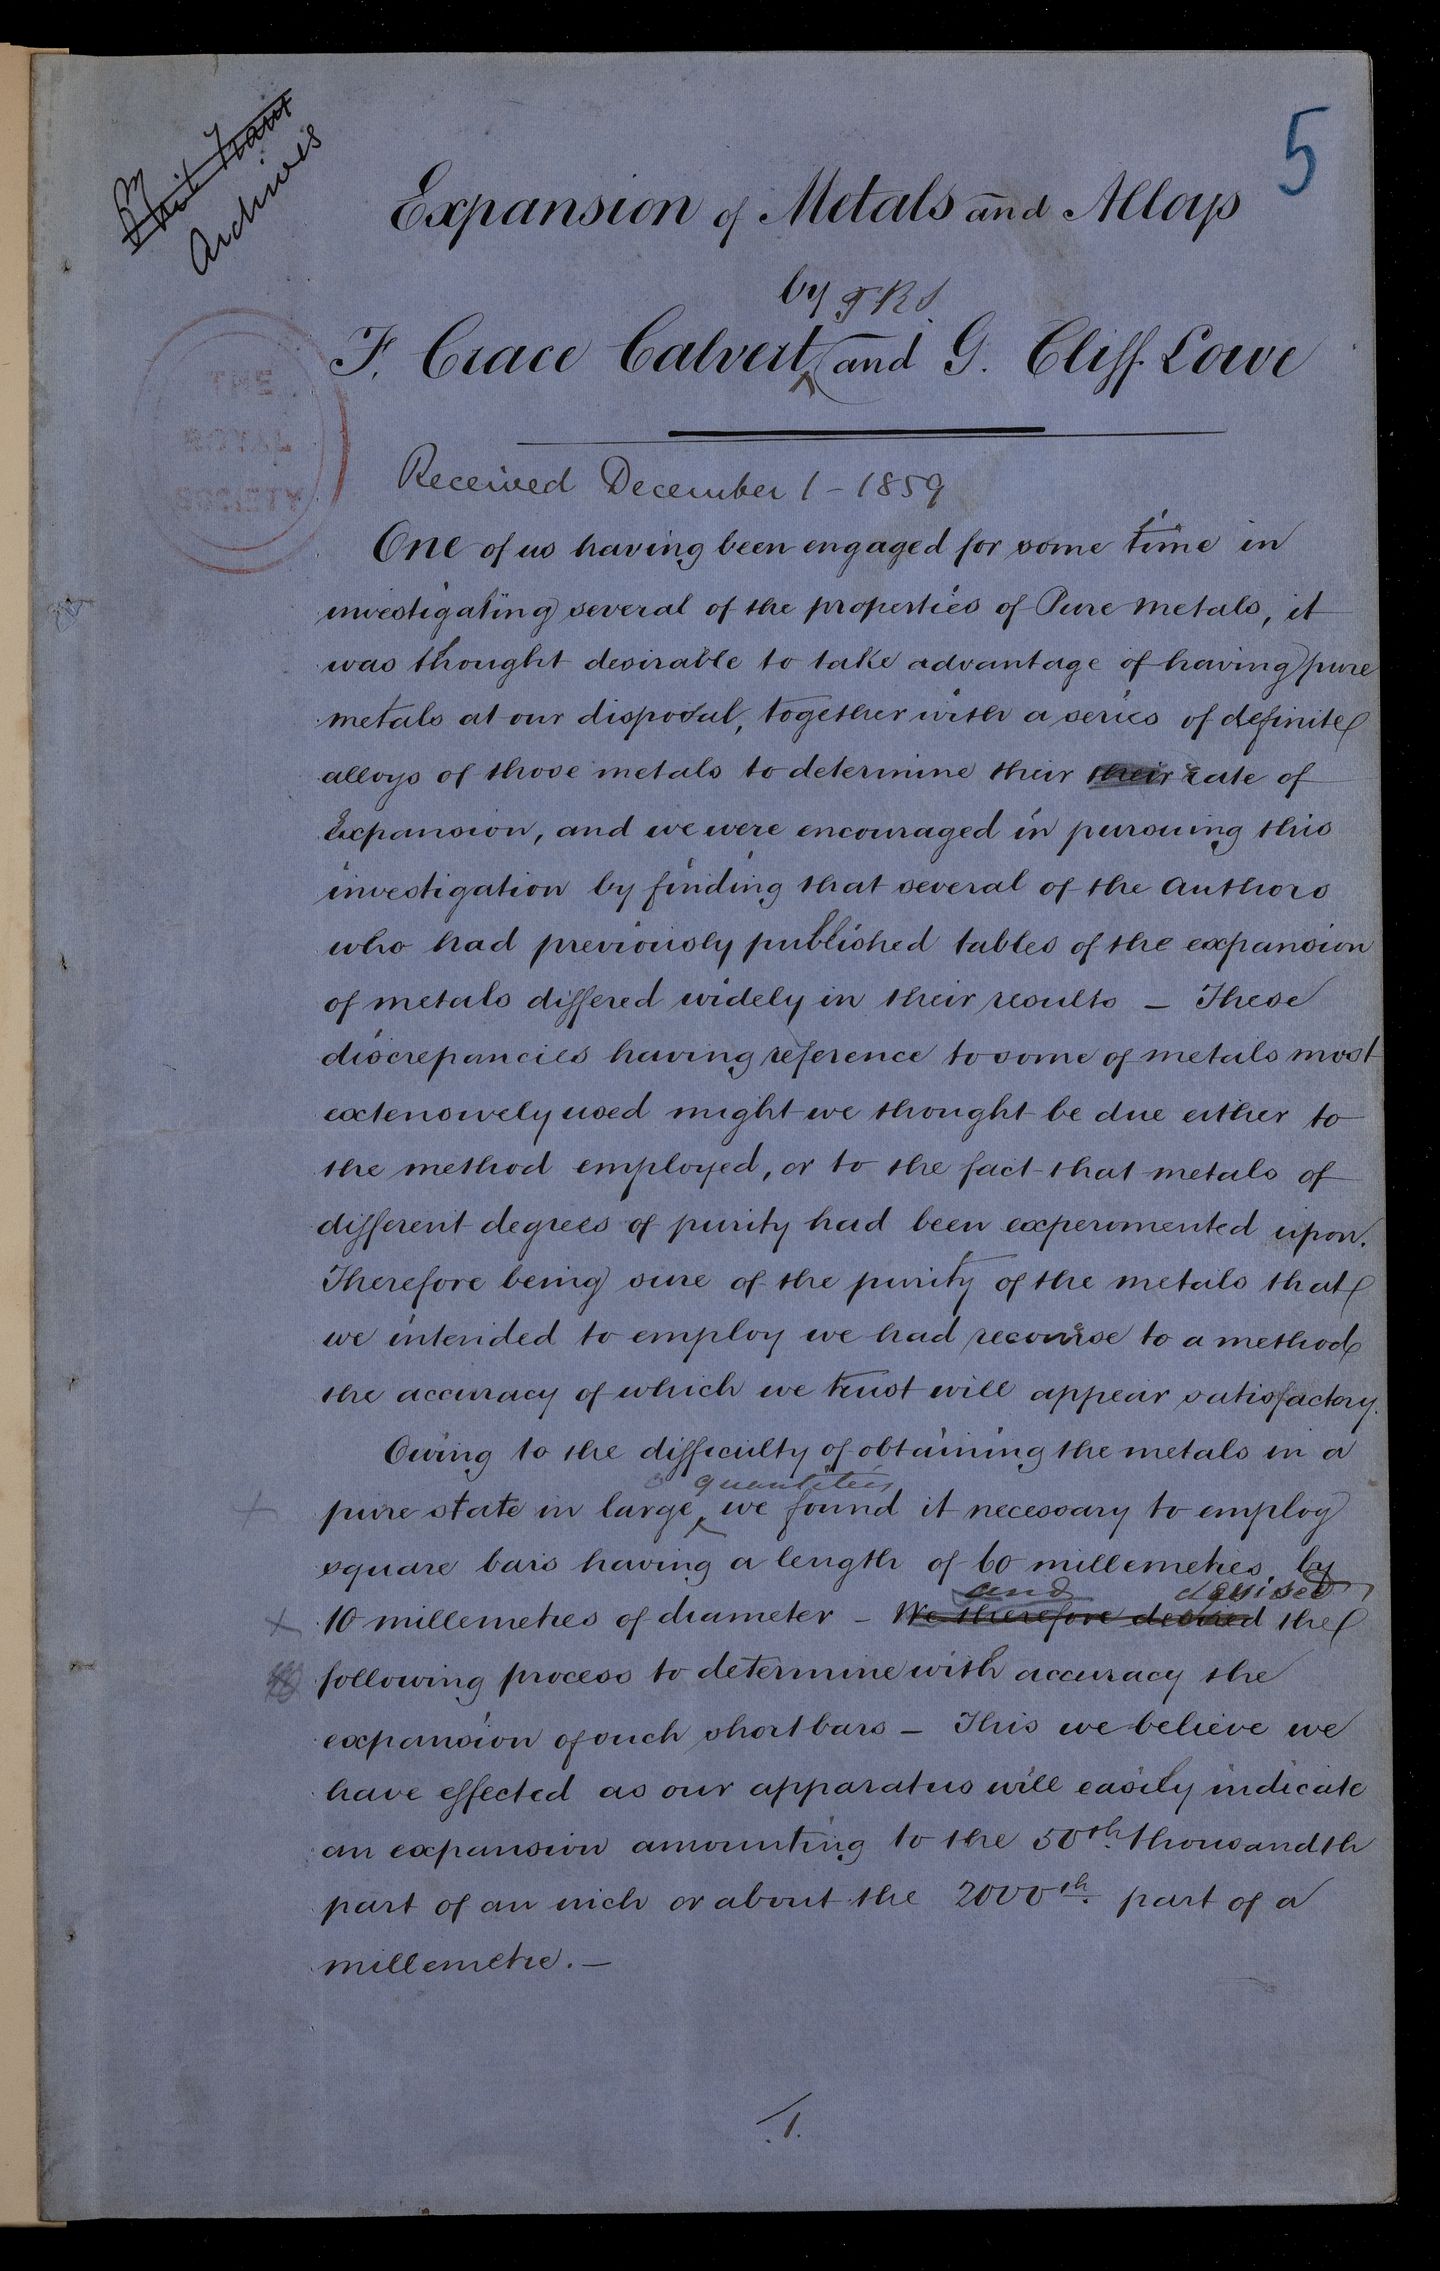 5
Archives
Expansion of Metals and Alloys
by
F. Crace Calvert, FRS. and G. Cliff Lowe
THE
ROYAL
SOCIETY
Received December 1 - 1859
One of us having been engaged for some time in
investigating several of the properties of Pure Metals, it
was thought desirable to take advantage of having pure
metals at our disposal, together with a series of definite
alloys of those metals to determine their their rate of
Expansion, and we were encouraged in pursuing this
investigation by finding that several of the Authors
who had previously published tables of the expansion
of metals differed widely in their results — These
discrepancies having reference to some of metals most
extensively used might we thought be due either to
the method employed, or to the fact that metals of
different degrees of purity had been experimented upon.
Therefore being sure of the purity of the metals that
we intended to employ we had recourse to a method
the accuracy of which we trust will appear satisfactory.
Owing to the difficulty of obtaining the metals in a
pure state in large quantities we found it necessary to employ
square bars having a length of 60 millemetres, by
10 millemetres of diameter – We therefore desired and devised the
following process to determine with accuracy the
expansion of such short bars – This we believe we
have effected as our apparatus will easily indicate
an expansion amounting to the 50th thousandth
part of an inch or about the 2000th part of a
millemetre. –
1.